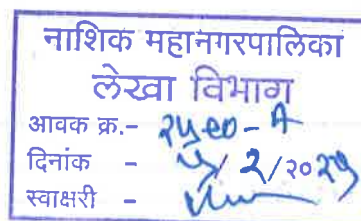 नाशिक महानगरपालिका
लेखा विभाग
आवक क्र.-
दिनांक - / 2/२०२५
स्वाक्षरी -